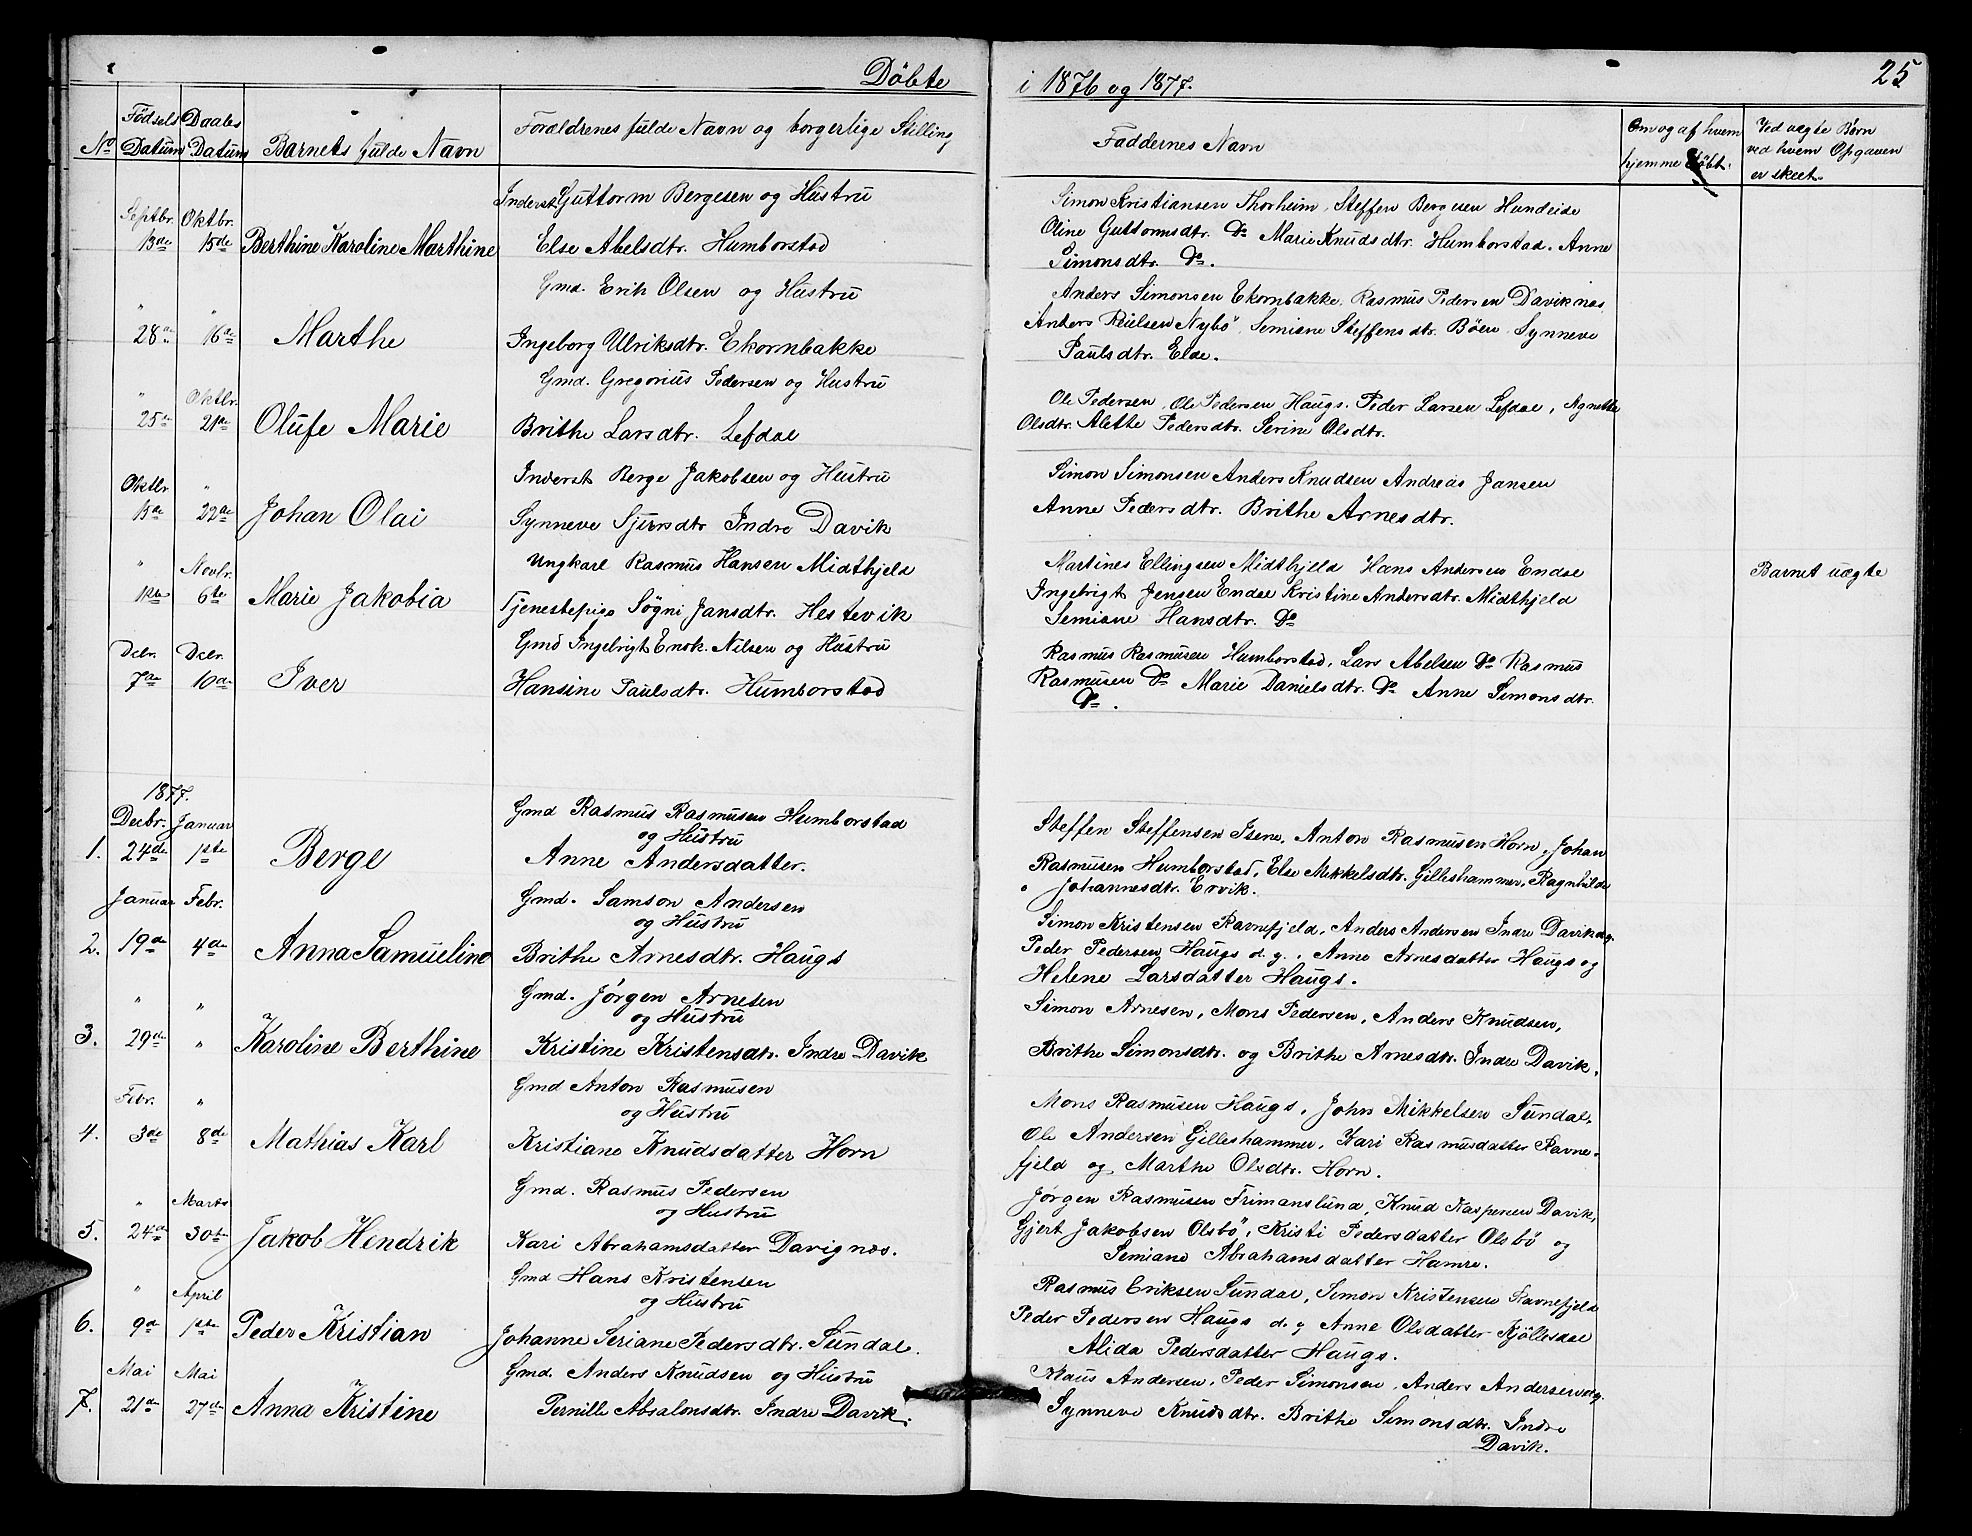 Døbte
i 1876 og 1877.
25
No
Fødsels Datum
Daabs Datum
Barnets fulde Navn
Forældrenes fulde Navn og borgerlige Stilling
Faddernes Navn
Om og af hvem hjemme døbt.
Ved uægte Børn ved hvem Opgaven er skeet.
Septbr. Oktbr.
13de 15de Berthine Karoline Marthine
Inderst Guttorm Bergesen og Hustru
Else Abelsdtr. Humborstad
Simon Kristiansen Thorheim, Steffen Bergesen Hundeide
Oline Guttormsdtr. Do Marie Knudsdtr. Humborstad. Anne
Simonsdtr. Do.
" "
28de 16de Marthe
Gmd. Erik Olsen og Hustru
Ingeborg Ulriksdtr. Ekornbakke
Anders Simonsen Ekornbakke, Rasmus Pedersen Daviknæs
Anders Nybö, Semiane Steffensdtr. Böen, Synneve
Paulsdtr. Elde.
" Oktbr.
25de 21de Olufe Marie
Gmd. Gregorius Pedersen og Hustru
Brithe Larsdtr. Lefdal
Ole Pedersen, Ole Pedersen Haugs. Peder Larsen Lefdal, Agnethe
Olsdtr. Alette Pedersdtr. Serine Olsdtr.
Oktbr "
15de 22de Johan Olai
Inderst Berge Jakobsen og Hustru
Synneve Sjursdtr Indre Davik
Simon Simonsen Anders Knudsen Andreas Jansen
Anne Pedersdtr. Brithe Arnesdtr.
" Novbr.
1ste 6te Marie Jakobia
Ungkarl Rasmus Hansen Midthjeld
Tjenestepige Søgni Jansdtr. Hestevik
Martines Ellingsen Midthjeld Hans Andersen Endal
Ingebrigt Jensen Endal Kristine Andersdtr. Midthjeld
Semiane Hansdtr. Do
Barnet uægte
Decbr. Decbr.
7de 10de Iver
Gmd Ingebrigt Enok. Nilsen og Hustru
Hansine Paulsdtr. Humborstad
Rasmus Rasmusen Humborstad, Lars Abelsen Do Rasmus
Rasmusen Do Marie Danielsdtr. Do Anne Simonsdtr.
Do.
1877.
Decbr. Januar
1. 24de 1ste Berge
Gmd Rasmus Rasmusen Humborstad
og Hustru
Anne Andersdatter.
Steffen Steffensen Isene, Anton Rasmusen Horn, Johan
Rasmusen Humborstad, Else Mikkelsdtr. Gilleshammer, Ragnhilde
Johannesdtr. Ervik.
Januar Febr.
2. 19de 4de Anna Samueline
Gmd. Samson Andersen
og Hustru
Brithe Arnesdtr. Haugs
Simon Kristensen Ravnefjeld, Anders Andersen Indre Davik og
Peder Pedersen Haugs d. y., Anne Arnesdatter Haugs og
Helene Larsdatter Haugs.
" "
3. 29de " Karoline Berthine
Gmd. Jörgen Arnesen
og Hustru
Kristine Kristensdtr. Indre Davik
Simon Arnesen, Mons Pedersen, Anders Knudsen,
Brithe Simonsdtr. og Brithe Arnesdtr. Indre Davik.
Febr. "
4. 3de 8de Mathias Karl
Gmd Anton Rasmusen
og Hustru
Kristiane Knudsdatter Horn
Mons Rasmusen Haugs, John Mikkelsen Sundal,
Ole Andersen Gilleshammer, Kari Rasmusdatter Ravne-
fjeld og Marthe Olsdtr. Horn.
" Marts
5. 24de 30te Jakob Hendrik
Gmd. Rasmus Pedersen
og Hustru
Kari Abrahamsdatter Davignæs.
Jørgen Rasmusen Frimanslund, Knud Kaspersen Davik,
Gjert Jakobsen Olsbö, Kristi Pedersdatter Olsbö og
Semiane Abrahamsdatter Hamre.
" April
6. 9de 1ste Peder Kristian
Gmd Hans Kristensen
og Hustru
Johanne Seriane Pedersdtr. Sundal.
Rasmus Eriksen Sundal, Simon Kristensen Ravnefjeld
Peder Pedersen Haugs d. y Anne Olsdatter Kjöllesdal
Alida Pedersdatter Haugs.
Mai Mai
7. 21de 27de Anna Kristine
Gmd. Anders Knudsen og Hustru
Pernille Absalonsdtr. Indre Davik.
Klaus Andersen, Peder Simonsen, Anders Andersen og
Synneve Knudsdtr. Brithe Simonsdtr. Indre
Davik.